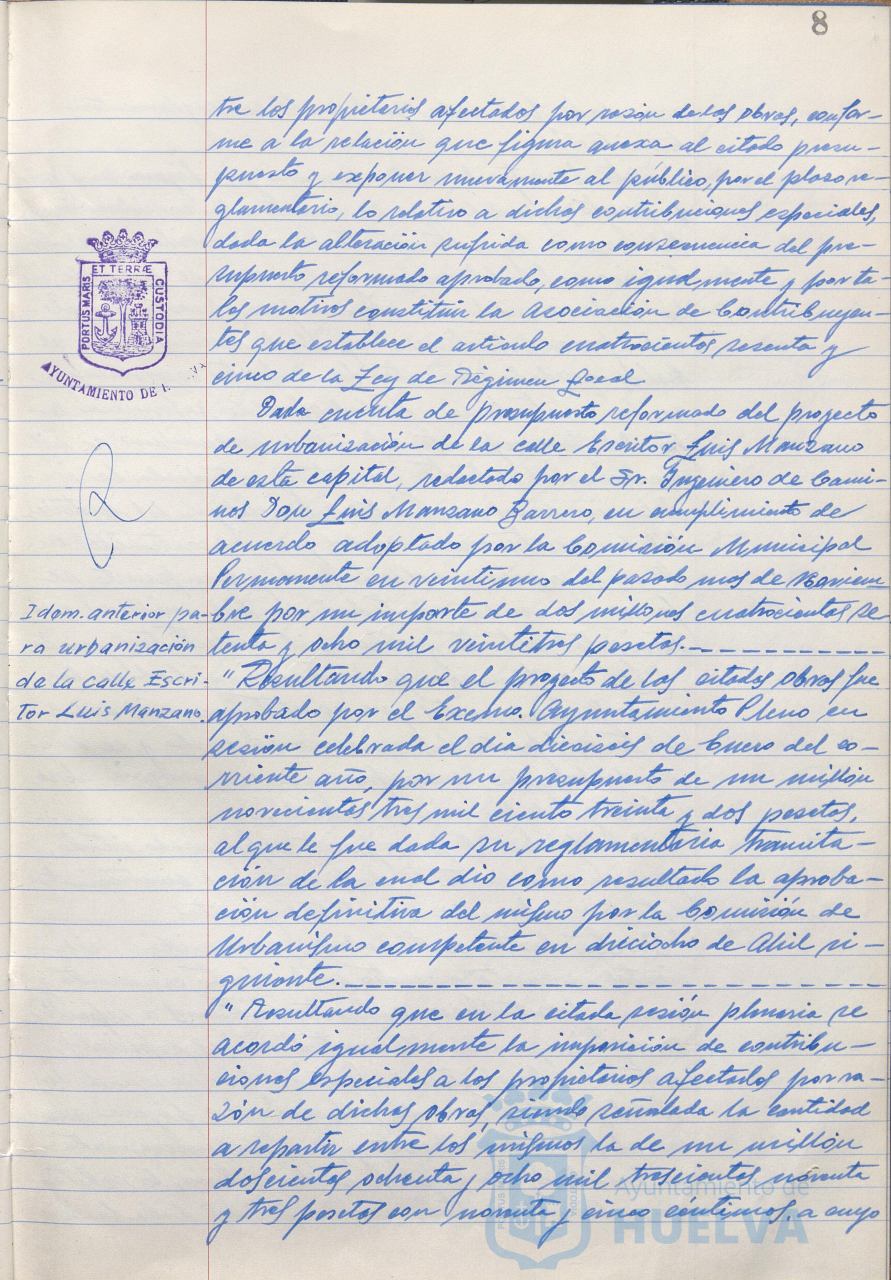 8
tre los propietarios afectados por razón de las obras, confor-
me a la relación que figura anexa al citado presu-
puesto y exponer nuevamente al público, por el plazo re-
glamentario, lo relativo a dichas contribuciones especiales,
dada la alteración sufrida como consecuencia del pre-
supuesto reformado aprobado, como igualmente y por ta-
les motivos constituir la Asociación de Contribuyen-
tes que establece el artículo cuatrocientos sesenta y
cinco de la Ley de Régimen Local
PORTUS MARIS ET TERRÆ CUSTODIA
AYUNTAMIENTO DE
Dada cuenta de presupuesto reformado del proyecto
de urbanización de la calle Escritor Luis Manzano
de esta capital, redactado por el Sr. Ingeniero de Cami-
nos Don Luis Manzano Barrero, en cumplimiento de
acuerdo adoptado por la Comisión Municipal
Permanente en veintiuno del pasado mes de Noviem
bre por un importe de dos millones cuatrocientas se
tenta y ocho mil veintitres pesetas.
Idem. anterior pa-
ra urbanización
de la calle Escri-
tor Luis Manzano.
"Resultando que el proyecto de las citadas obras fue
aprobado por el Excmo. Ayuntamiento Pleno en
sesión celebrada el dia dieciseis de Enero del co-
rriente año, por un presupuesto de un millón
novecientas tres mil ciento treinta y dos pesetas,
al que le fue dada su reglamentaria tramita-
ción de la cual dio como resultado la aproba-
ción definitiva del mismo por la Comisión de
Urbanismo competente en dieciocho de Abril si-
guiente.
"Resultando que en la citada sesión plenaria se
acordó igualmente la imposición de contribu-
ciones especiales a los propietarios afectados por ra-
zón de dichas obras, siendo señalada la cantidad
a repartir entre los mismos la de un millón
doscientas ochenta y ocho mil trescientas noventa
y tres pesetas con noventa y cinco centimos, a cuyo
Ayuntamiento de
HUELVA